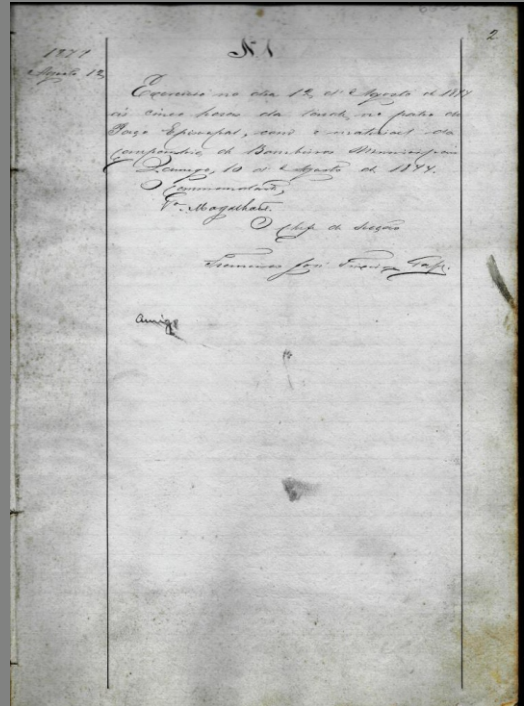 2
Nº 1
1877
Agosto 12,
Exercicio no dia 12, de Agosto de 1877
ás cinco horas da tarde, no pateo do
Paço Episcopal, com o material da
Companhia de Bombeiros Municipaes
Lamego, 10 de Agosto de 1877.
O Commandante,
Vº. Magalhães.
O Chefe de Secção
Francisco José
Amigo